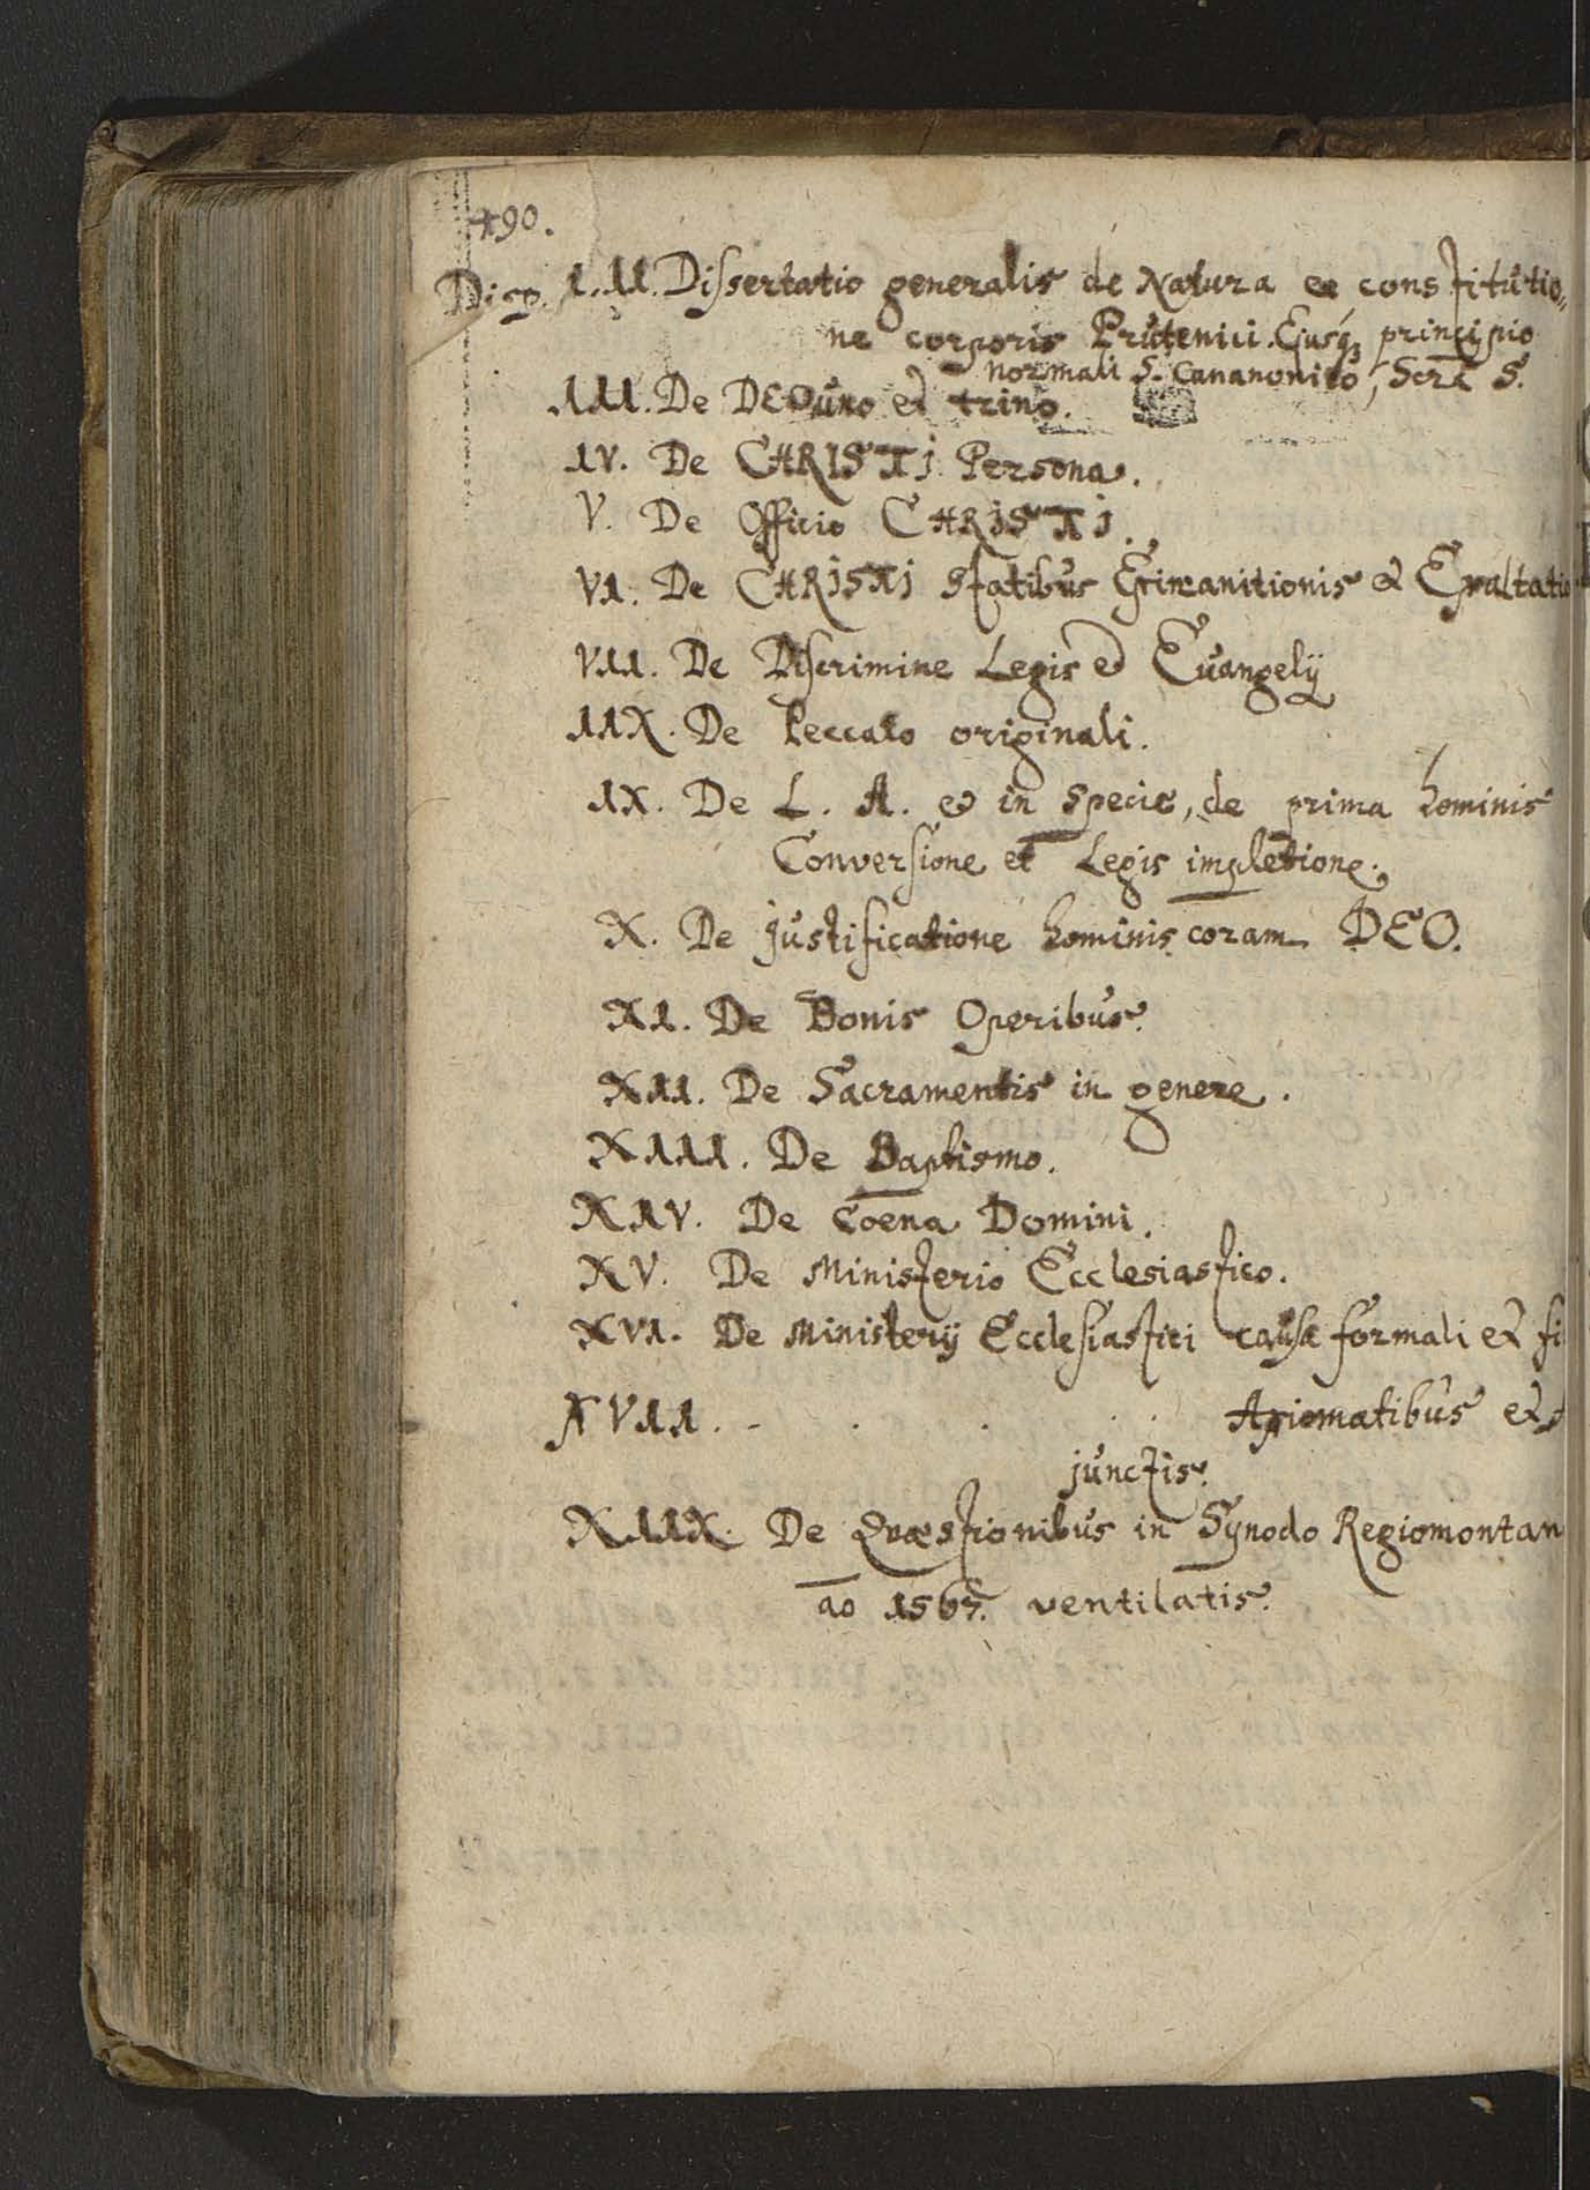 490.
Disp. I. II. Dissertatio generalis de Natura et constitutio„
ne corporis Prutenici. Ejusq; principio
normali S. Cananonico, Scrã S.
III. De DEO uno et trino.
IV. De CHRISTI Persona.
V. De Officio CHRISTI.
VI. De CHRISTI statibus Exinanitionis et Exaltatio
VII. De Discrimine Legis et Evangelij
IIX. De Peccato originali.
IX. De L. A. et in specie, de prima hominis
Conversione et Legis impletione.
X. De justificatione hominis coram DEO.
XI. De Bonis Operibus.
XII. De Sacramentis in genere.
XIII. De Baptismo.
XIV. De Coena Domini.
XV. De Ministerio Ecclesiastico.
XVI. De Ministerij Ecclesiastici causa formali et fi
XVII. - . . . . Axiomatibus et
junctis.
XIIX. De Quæstionibus in Synodo Regiomontan
ao 1567. ventilatis.